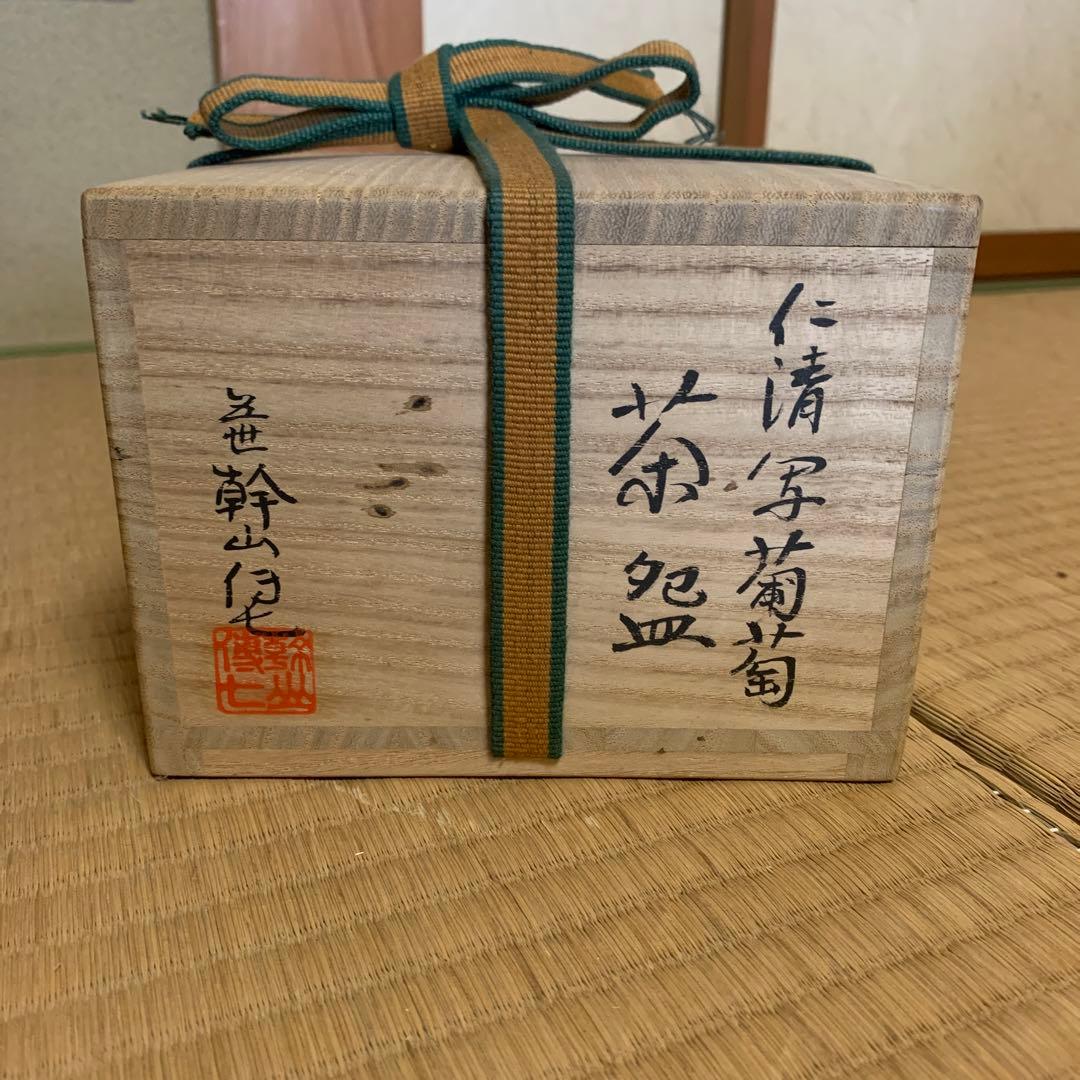 仁清写葡萄
茶盌
五世幹山伝七
幹山
傳七